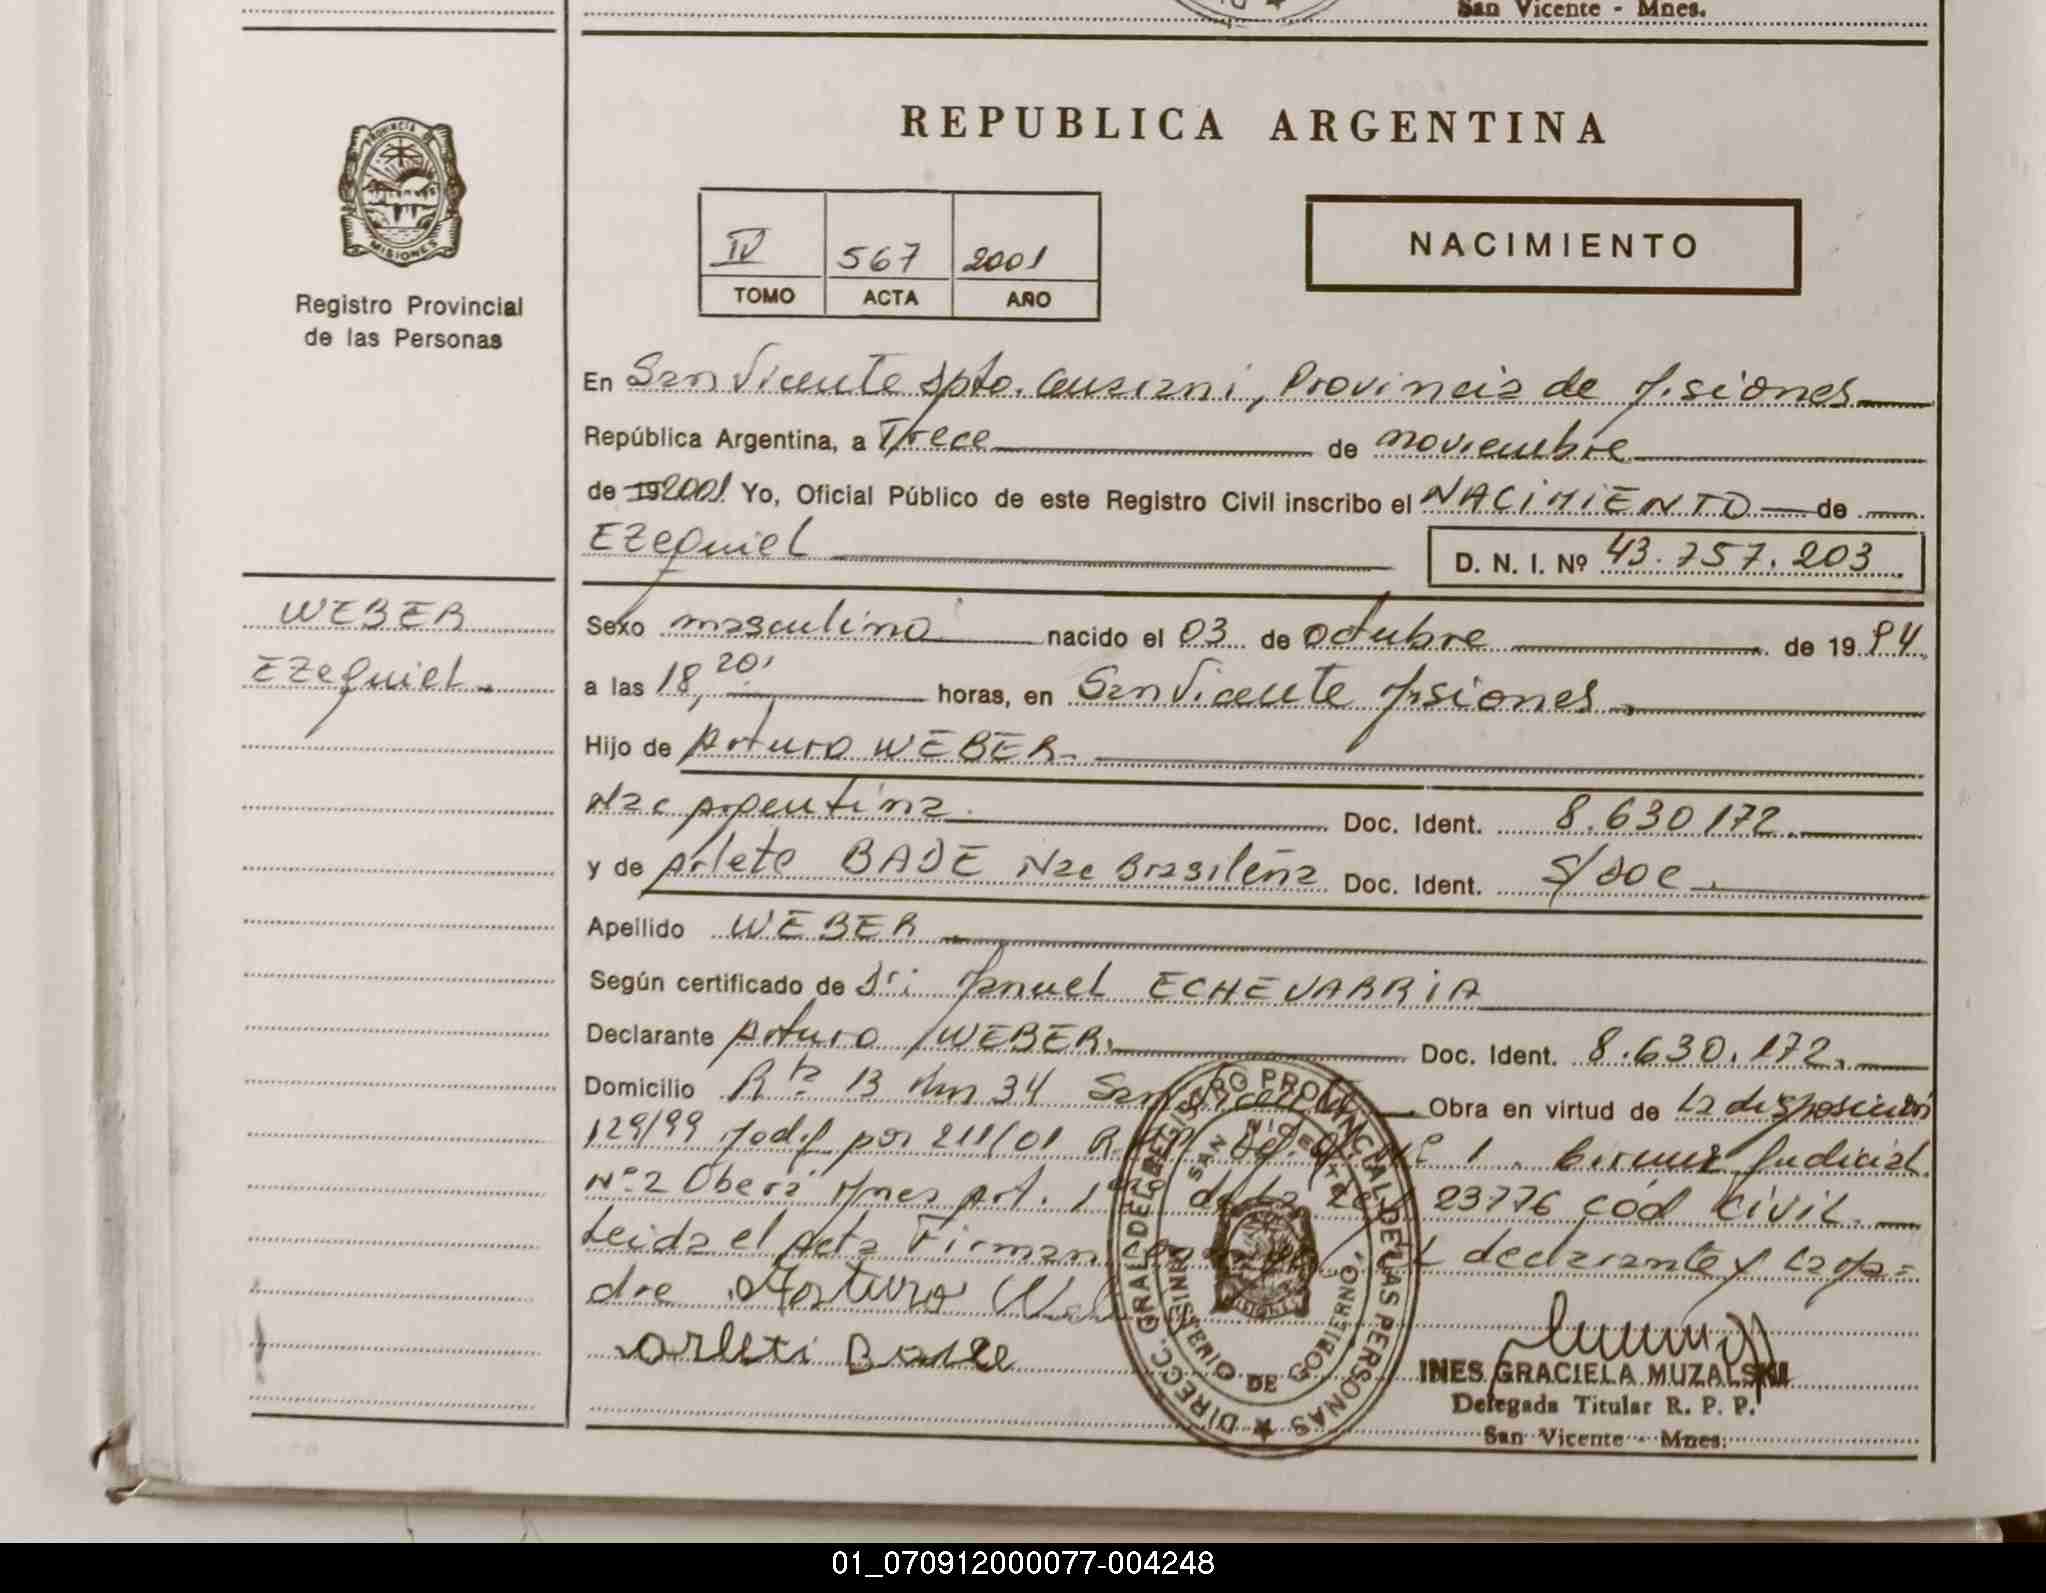 San Vicente - Mnes.
REPUBLICA ARGENTINA
PROVINCIA DE
MISIONES
Registro Provincial
de las Personas
IV 567 2001
TOMO ACTA AÑO
NACIMIENTO
En San Vicente Dpto. Guarani, Provincia de Misiones
República Argentina, a Trece de noviembre
de 19 2001 Yo, Oficial Público de este Registro Civil inscribo el NACIMIENTO de
Ezequiel
D. N. I. Nº 43.757.203
WEBER
Ezequiel.
Sexo masculino nacido el 03 de octubre de 19 94
a las 18,20' horas, en San Vicente Misiones.
Hijo de Arturo WEBER.
Nac Argentina. Doc. Ident. 8.630172.
y de Arlete BADE Nac Brasileña Doc. Ident. S/doc.
Apellido WEBER.
Según certificado de Dr: Manuel ECHEVARRIA
Declarante Arturo WEBER. Doc. Ident. 8.630.172.
Domicilio Rta 13 Km 34 San Vicente Obra en virtud de la disposición
129/99 Modif por 211/01 Nº 1. Circuns Judicial
Nº 2 Oberá Mnes Art. 1 de la Ley 23776 Cód Civil.
Leida el Acta Firman declarante y la Ma=
dre Arturo
Arleti Bade
DIRECC. GRAL. DEL REGISTRO PROVINCIAL DE LAS PERSONAS
SAN VICENTE
MINISTERIO DE GOBIERNO
MISIONES
INES GRACIELA MUZALSKI
Delegada Titular R. P. P.
San Vicente - Mnes.
01_070912000077-004248